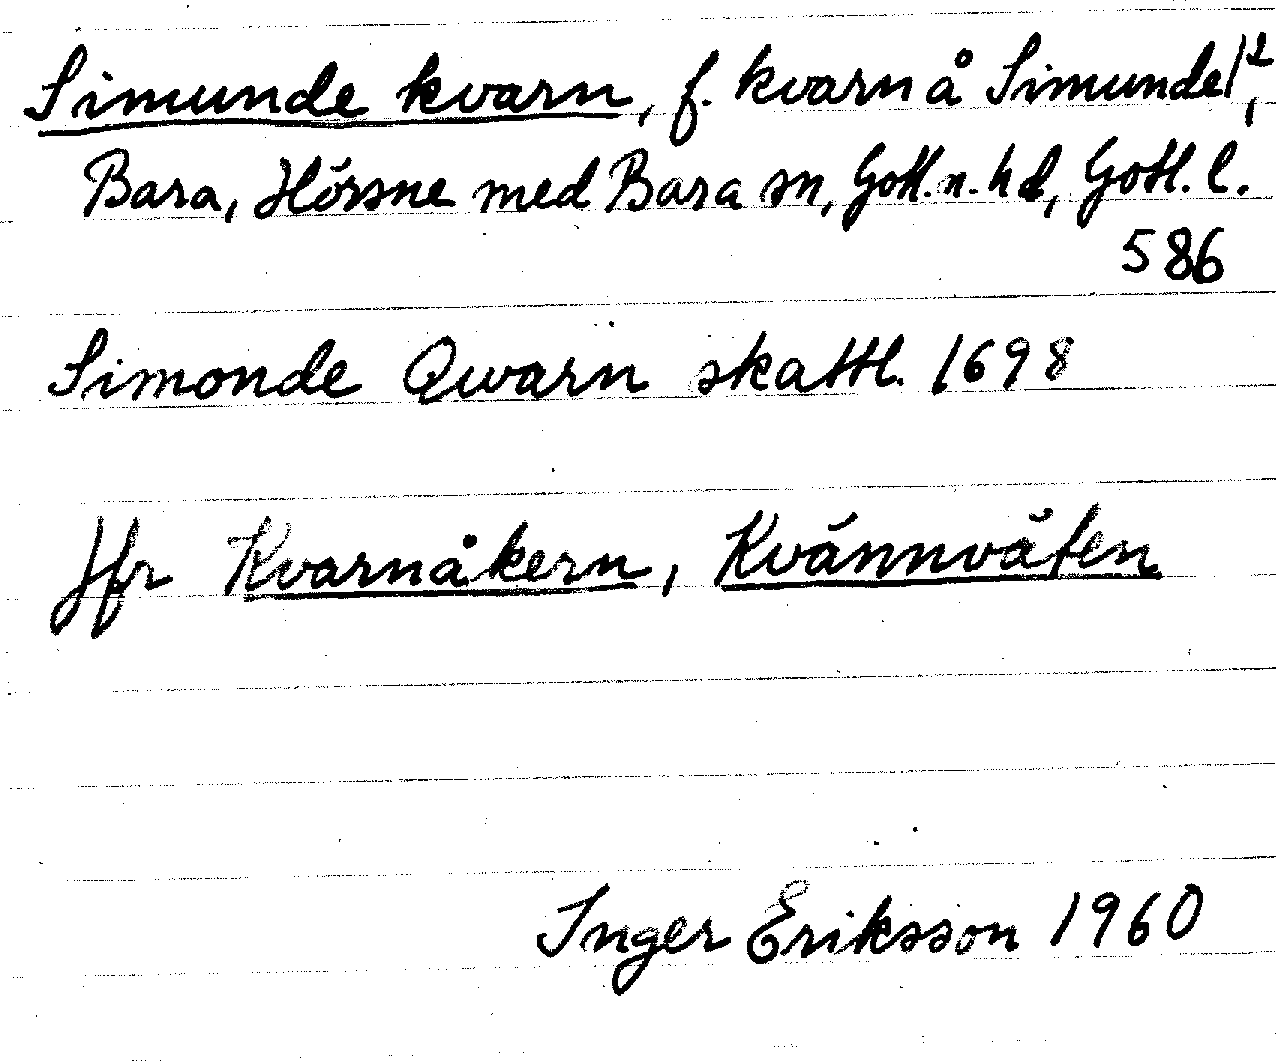 Simunde kvarn, f. kvarn å Simunde 1²,
Bara, Hörsne med Bara sn, Gotl. n. hd, Gotl. l.
586
Simonde Qwarn skattl. 1698
Jfr Kvarnåkern, Kvännväten
Inger Eriksson 1960